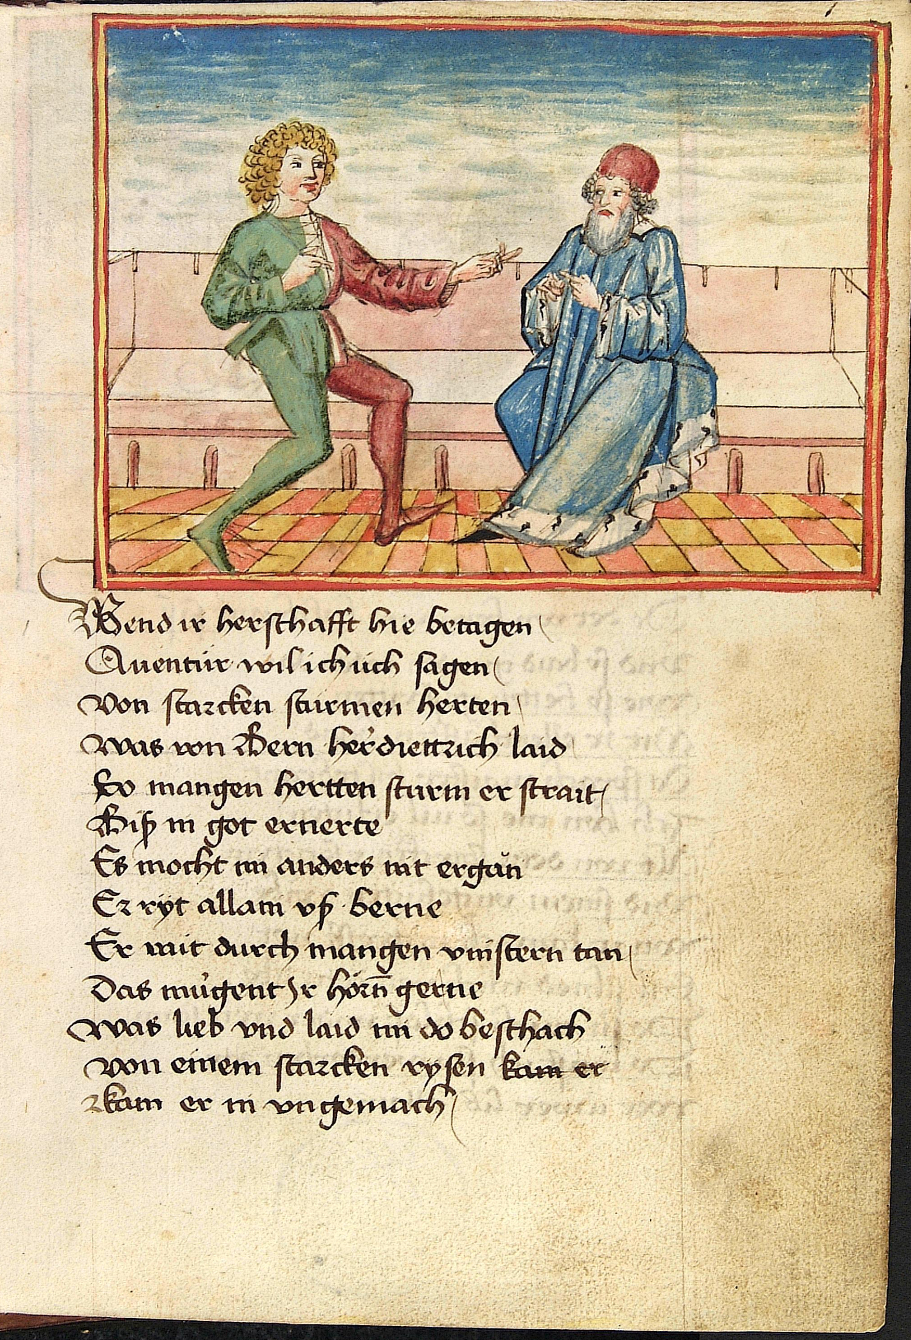 Wend ir herschafft hie betagen
Auentúr wil ich úch sagen
von starcken stúrmen herten
was von Bern her diettrich laid
So mangen hertten sturm er strait
Biß in got ernerte
Es mocht im anders nit ergăn
Er ryt allain vß berne
Er rait durch mangen vinstern tan
Das mu̇gent Ir hörn̄ gerne
was lieb vnd laid im do beschach
von einem starcken rysen kam er
kam er in vngemach